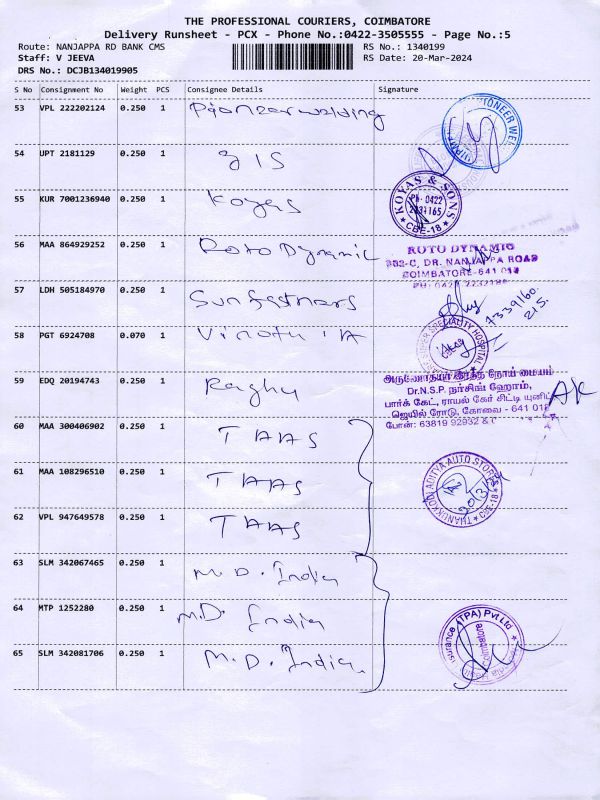 THE PROFESSIONAL COURIERS, COIMBATORE
Delivery Runsheet - PCX - Phone No.:0422-3505555 - Page No.:5
Route: NANJAPPA RD BANK CMS RS No.: 1340199
Staff: V JEEVA RS Date: 20-Mar-2024
DRS No.: DCJB134019905
S No Consignment No Weight PCS Consignee Details Signature
53 VPL 222202124 0.250 1
PIONEER WEL
54 UPT 2181129 0.250 1 GIS
55 KUR 7001236940 0.250 1 Koyas
KOYAS & SONS
Ph: 0422
CBE-18
56 MAA 864929252 0.250 1 Roto Dynamic
ROTO DYNAMIC
382-C, DR. NANJAPPA ROAD
COIMBATORE-641 018
57 LDH 505184970 0.250 1 Sunfastnars
58 PGT 6924708 0.070 1
SPECIALITY HOSPITAL
59 EDQ 20194743 0.250 1 Raghu
அருணோதயா இரத்த நோய் மையம்
Dr.N.S.P. நர்சிங் ஹோம்,
பார்க் கேட், ராயல் கேர் சிட்டி யுனிட்
ஜெயில் ரோடு, கோவை - 641 018
போன்: 63819 92932 &
60 MAA 300406902 0.250 1 TAAS
61 MAA 108296510 0.250 1 TAAS
THANUKKODI ADITYA AUTO STORES
CBE-18
62 VPL 947649578 0.250 1 TAAS
63 SLM 342067465 0.250 1 M.D. India
64 MTP 1252280 0.250 1 M.D. India
surance (TPA) Pvt Ltd
Coimbatore
65 SLM 342081706 0.250 1 M.D. India